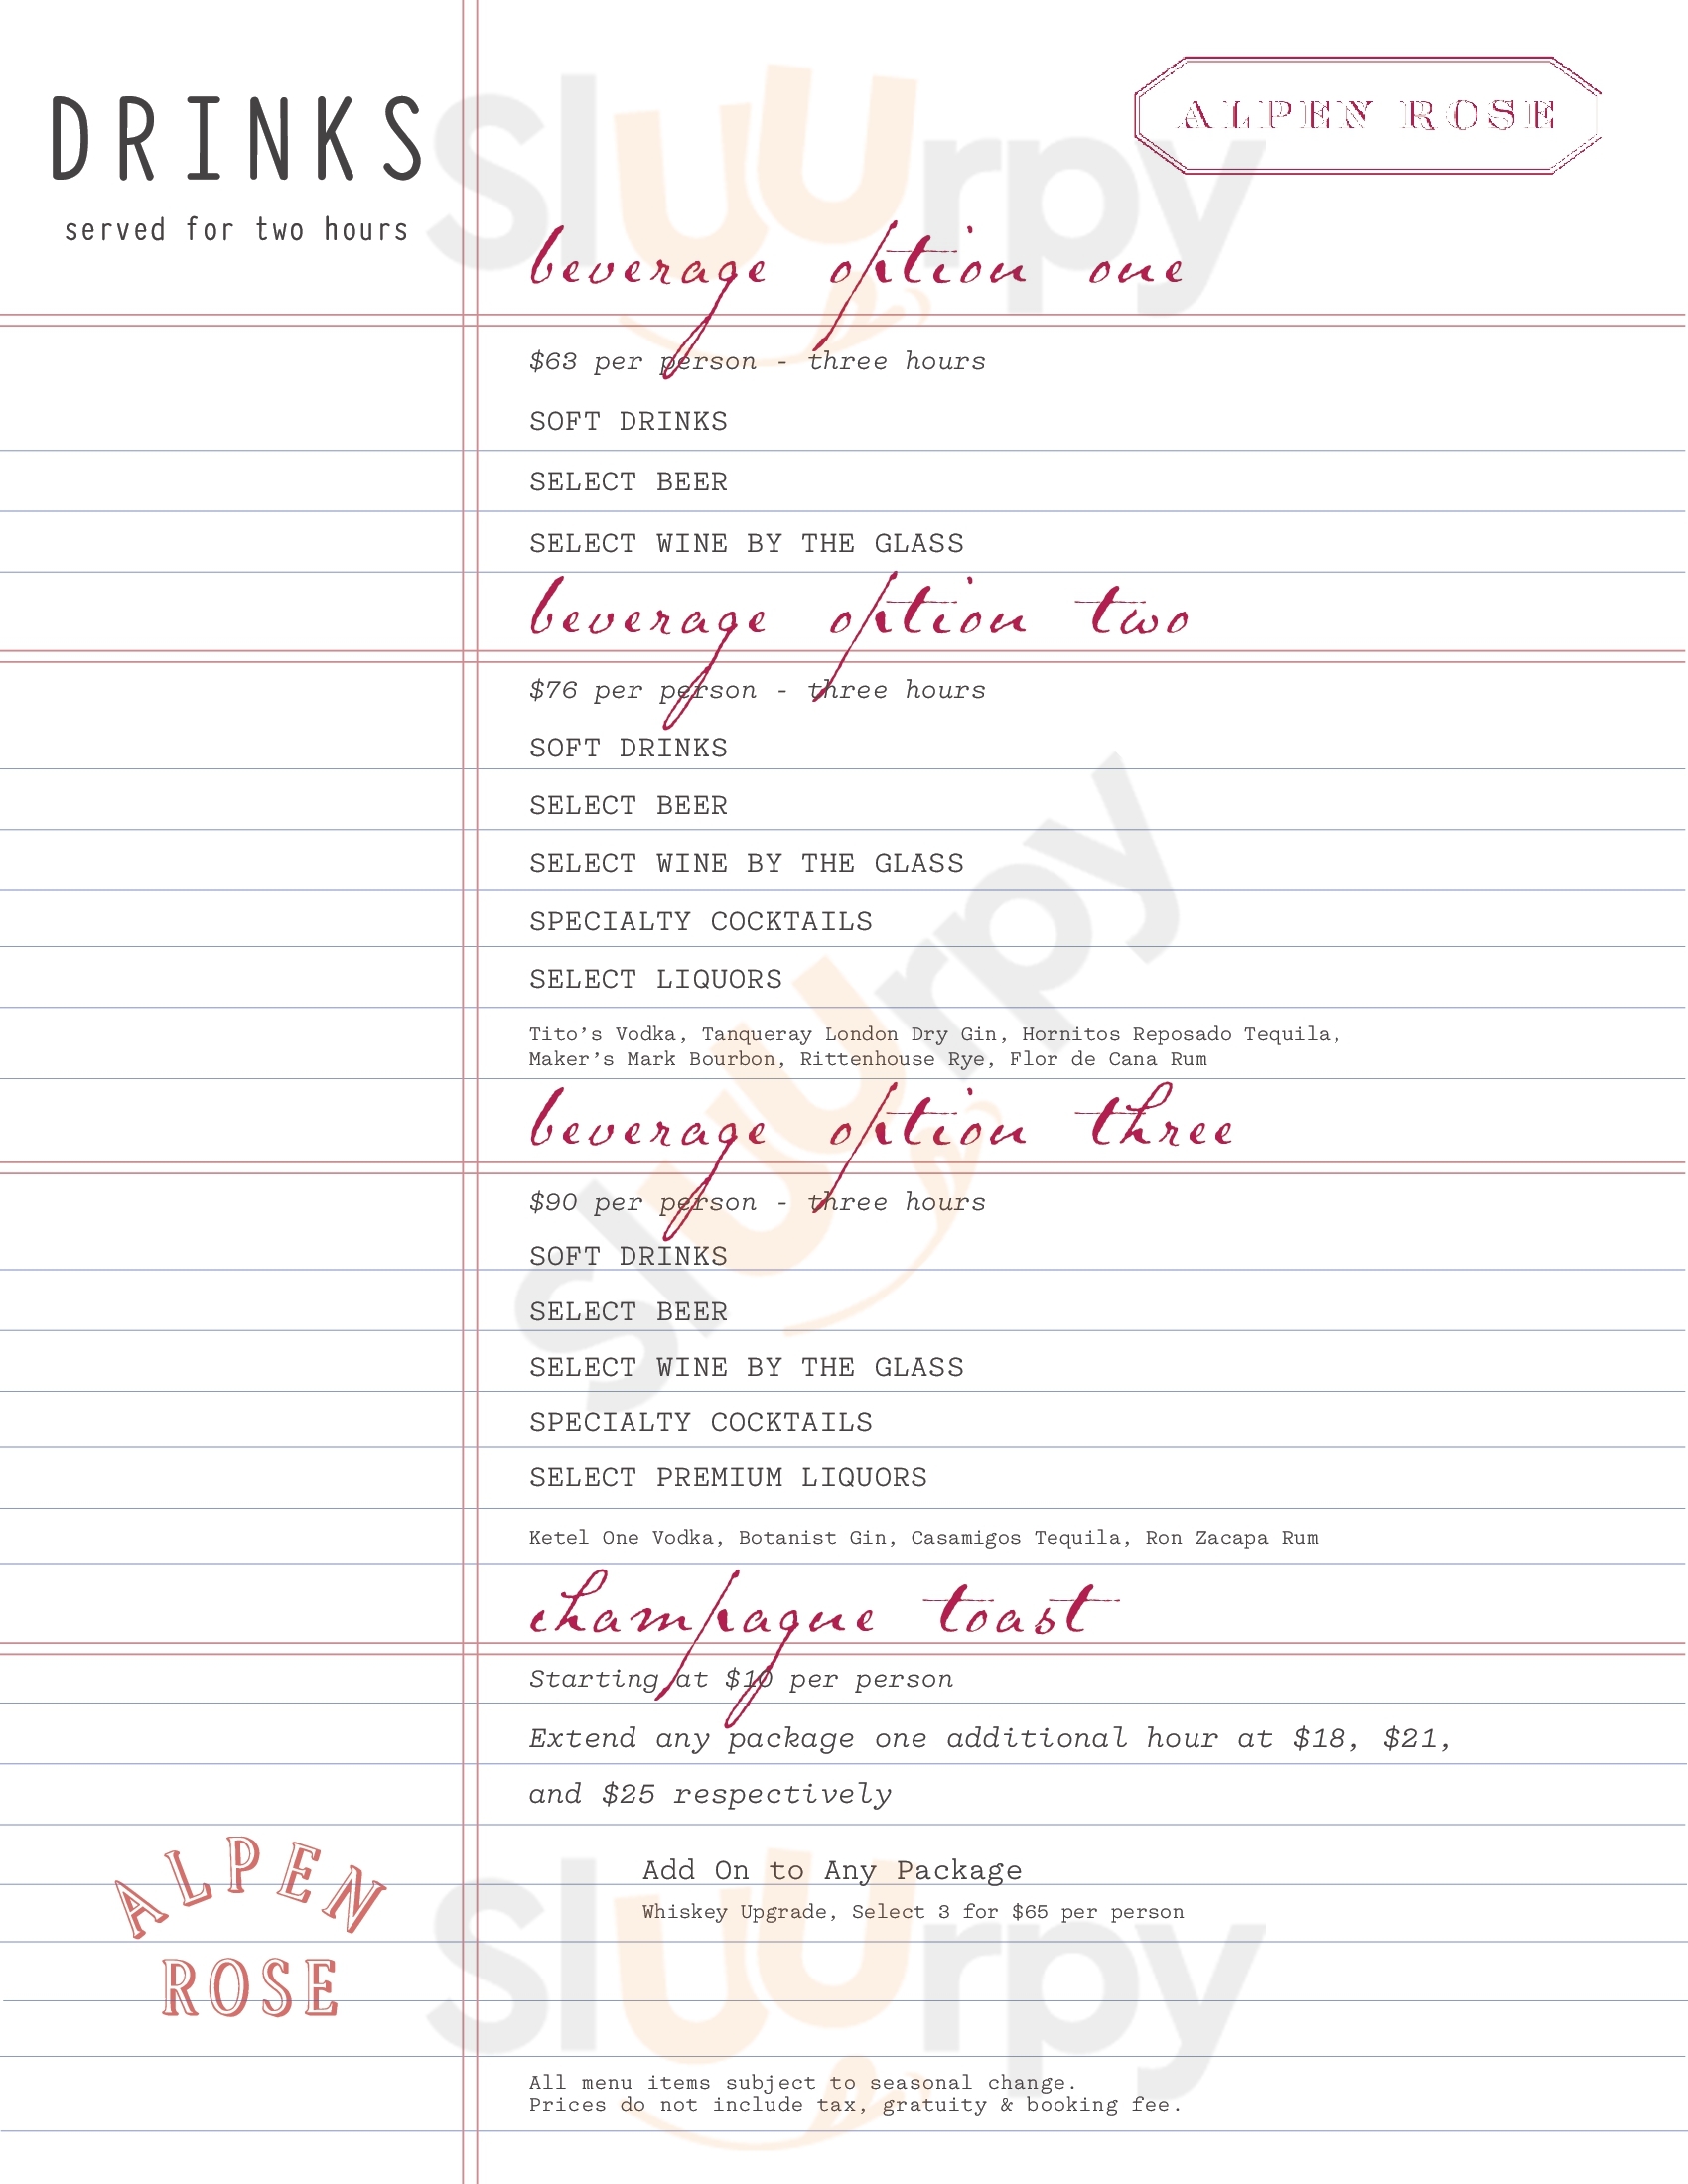 DRINKS
served for two hours
ALPEN ROSE
beverage option one
$63 per person - three hours
SOFT DRINKS
SELECT BEER
SELECT WINE BY THE GLASS
beverage option two
$76 per person - three hours
SOFT DRINKS
SELECT BEER
SELECT WINE BY THE GLASS
SPECIALTY COCKTAILS
SELECT LIQUORS
Tito’s Vodka, Tanqueray London Dry Gin, Hornitos Reposado Tequila,
Maker’s Mark Bourbon, Rittenhouse Rye, Flor de Cana Rum
beverage option three
$90 per person - three hours
SOFT DRINKS
SELECT BEER
SELECT WINE BY THE GLASS
SPECIALTY COCKTAILS
SELECT PREMIUM LIQUORS
Ketel One Vodka, Botanist Gin, Casamigos Tequila, Ron Zacapa Rum
champagne toast
Starting at $10 per person
Extend any package one additional hour at $18, $21,
and $25 respectively
Add On to Any Package
Whiskey Upgrade, Select 3 for $65 per person
ALPEN
ROSE
All menu items subject to seasonal change.
Prices do not include tax, gratuity & booking fee.
Sluurpy
Sluurpy
Sluurpy